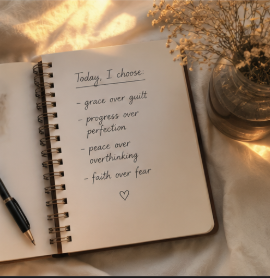 Today, I choose
- grace over guilt
- progress over
perfection
- peace over
overthinking
- faith over fear